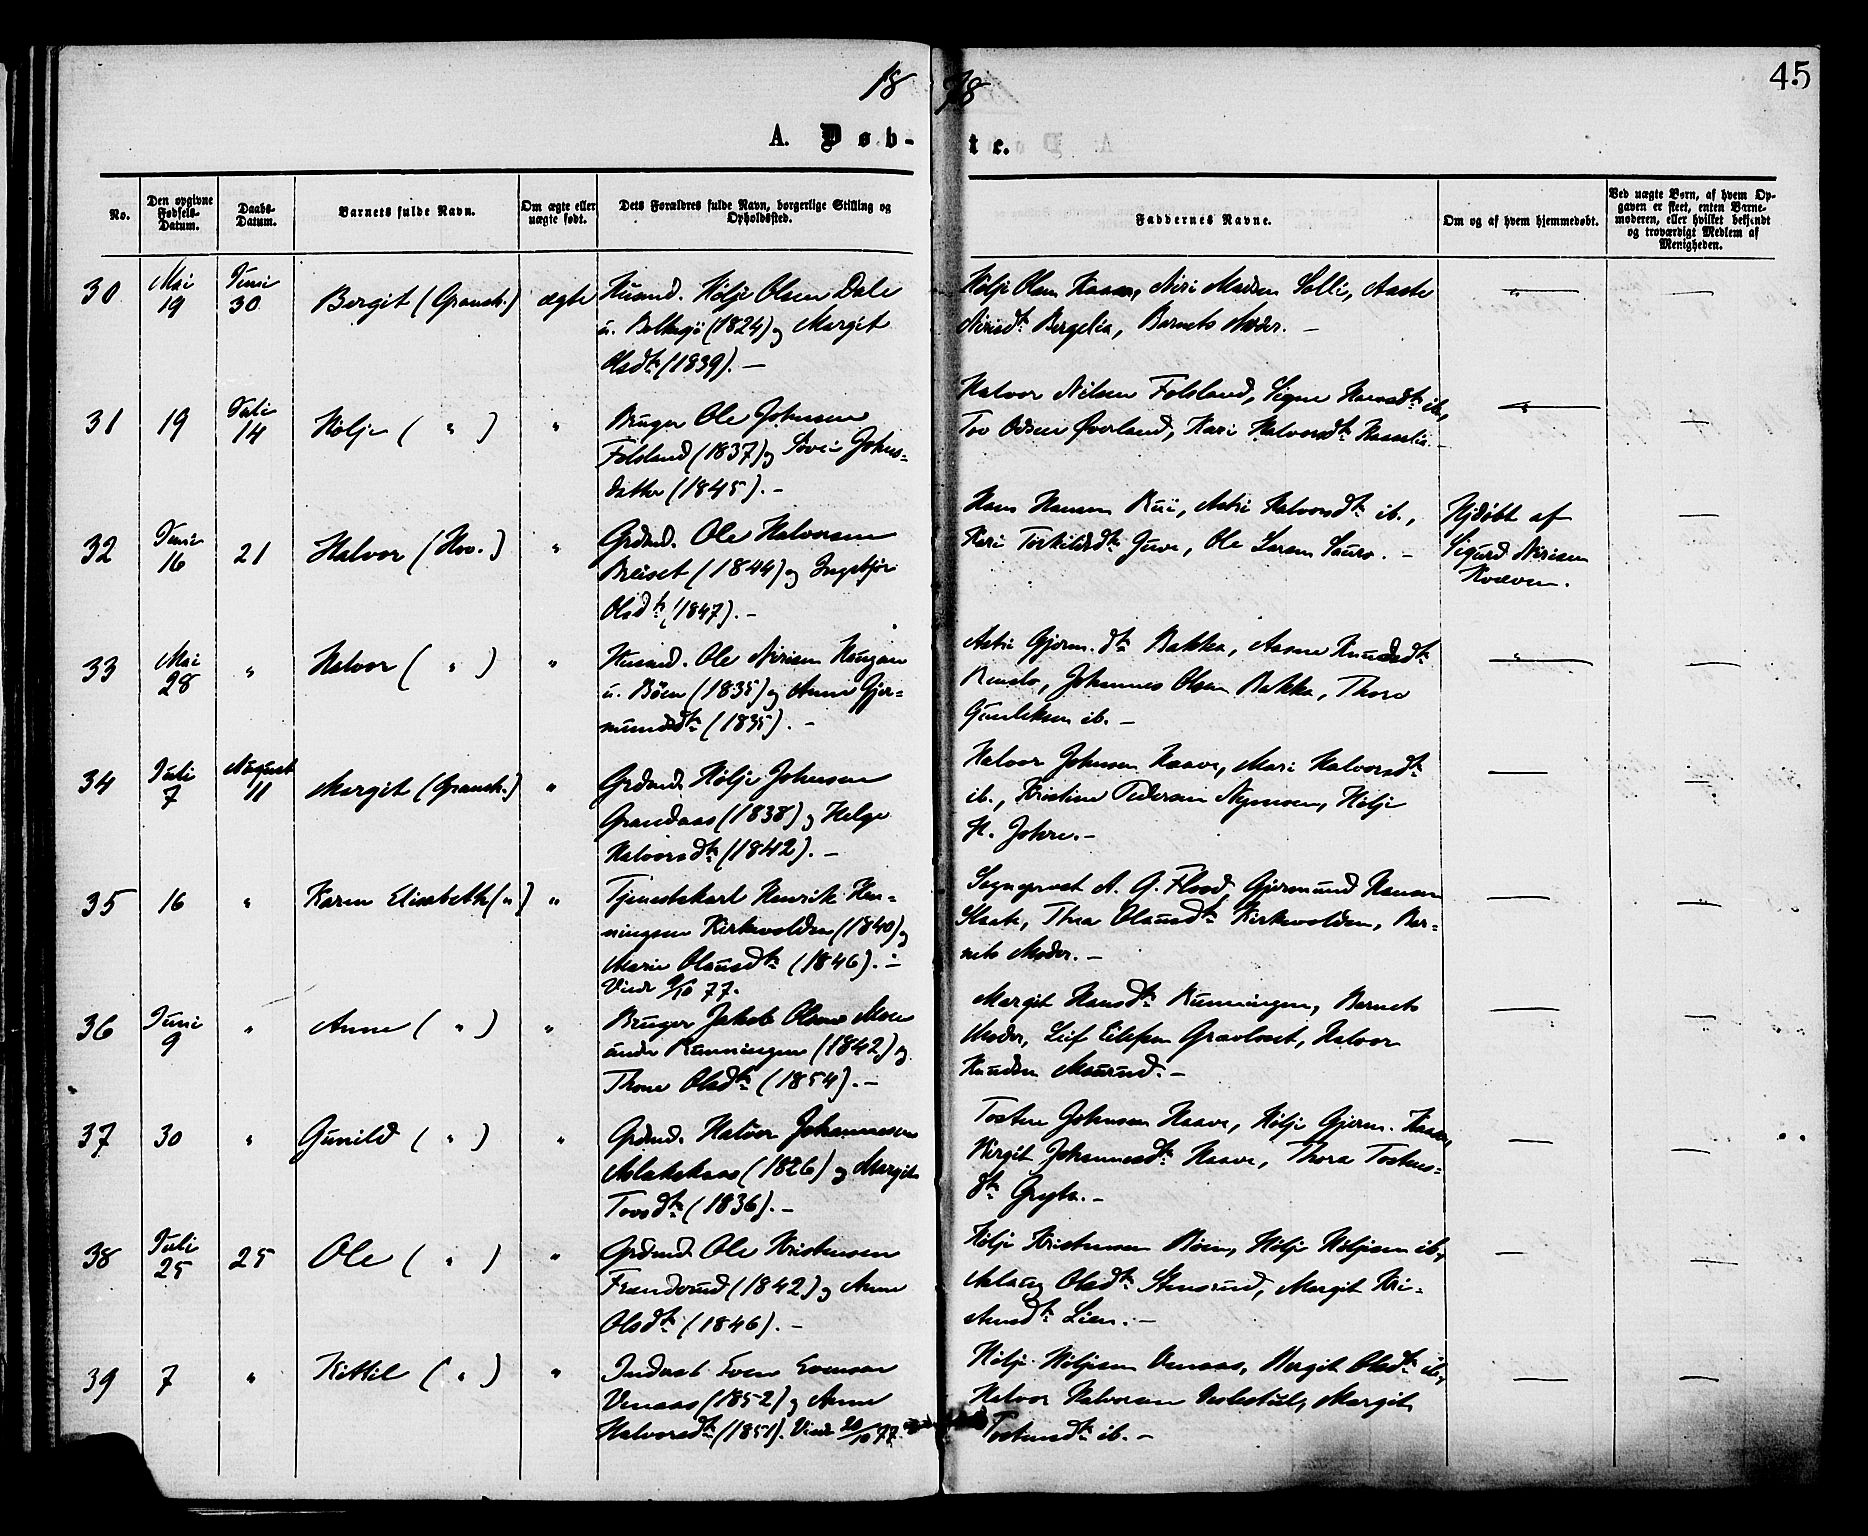 1878
45
A. Døbte.
No.
Den opgivne Fødsels-Datum.
Daabs-Datum.
Barnets fulde Navn.
Om ægte eller uægte født.
Dets Forældres fulde Navn, borgerlige Stilling og Opholdssted.
Faddernes Navne.
Om og af hvem hjemmedøbt.
Ved uægte Børn, af hvem Opgaven er skeet, enten Barnemoderen, eller hvilket bekjendt og troværdigt Medlem af Menigheden.
30
Mai 19
Juni 30
Bergit (Gransh.)
ægte
Husmd. Hølje Olsen Dale
u. Bolkesjø (1824) og Margit
Olsdtr (1839). –
Hølje Olsen Haave, Niri Madsen Solli, Aaste
Nirisdtr Bergelia, Barnets Moder. –
31
19
Juli 14
Hølje ( " )
"
Bruger Ole Johnsen
Følsland (1837) og Søvei Johns-
datter (1845). –
Halvor Nilsen Følsland, Signe Hansdtr ib.,
Tov Olsen Øverland, Kari Halvorsdtr Hasselia. –
32
Juni 16
21
Halvor (Hov.)
"
Grdmd. Ole Halvorsen
Breiset (1844) og Ingebjør
Olsdtr (1847). –
Hans Hansen Rui, Astri Halvorsdtr ib.,
Kari Torkildsdtr Juve, Ole Larsen Sauro. –
Hjdøbt af
Sigurd Nirisen
Kvæven.
33
Mai 28
"
Halvor ( " )
"
Husmd. Ole Nirisen Haugan
u. Bøen (1835) og Anne Gjer-
mundsdtr (1835). –
Astri Gjerm.dtr Bakka, Aasne Knudsdtr
Johannes Olsen Bakka, Thore
Gunleksen ib. –
34
Juli 7
August 11
Margit (Gransh.)
"
Grdmd. Hølje Johnsen
Grandaas (1838) og Helge
Halvorsdtr (1842). –
Halvor Johnsen Haave, Mari Halvorsdtr
ib., Kristine Pedersen Nymoen, Hølje
H. Johre. –
35
16
"
Karen Elisabeth ( " )
"
Tjenestekarl Henrik Hen-
ningsen Kirkevolden (1840) og
Marie Olausdtr (1846). –
Viede 9/10 77.
Sogneprest A. G. Flood, Gjermund Hansen
Skaate, Thea Olausdtr Kirkevolden, Bar-
nets Moder. –
36
Juni 9
"
Anne ( " )
"
Bruger Jakob Olsen Moen
under Runningen (1842) og
Thone Olsdtr (1854). –
Margit Hansdtr Runningen, Barnets
Moder, Leif Eilefsen Gravloset, Halvor
Knudsen Maurud. –
37
30
"
Gunild ( " )
"
Grdmd. Halvor Johannesen
Aslakskaas (1826) og Margit
Tovsdtr (1836). –
Tosten Johnsen Haave, Hølje Gjerm. Haave,
Birgit Johannesdtr Haave, Thora Tostens-
dtr Gryta. –
38
Juli 25
25
Ole ( " )
"
Grdmd. Ole Kristensen
Frendsrud (1842) og Anne
Olsdtr (1846). –
Hølje Kristensen Bøen, Hølje Høljesen ib.,
Aslaug Olsdtr Stensrud, Margit Kri-
stensdtr Lien. –
39
7
"
Kittil ( " )
"
Inderst Even Evensen
Venaas (1852) og Anne
Halvorsdtr (1851). Viede 20/10 77.
Hølje Høljesen Venaas, Bergit Olsdtr ib.,
Halvor Halvorsen Veslestul, Margit
Tostensdtr ib. –